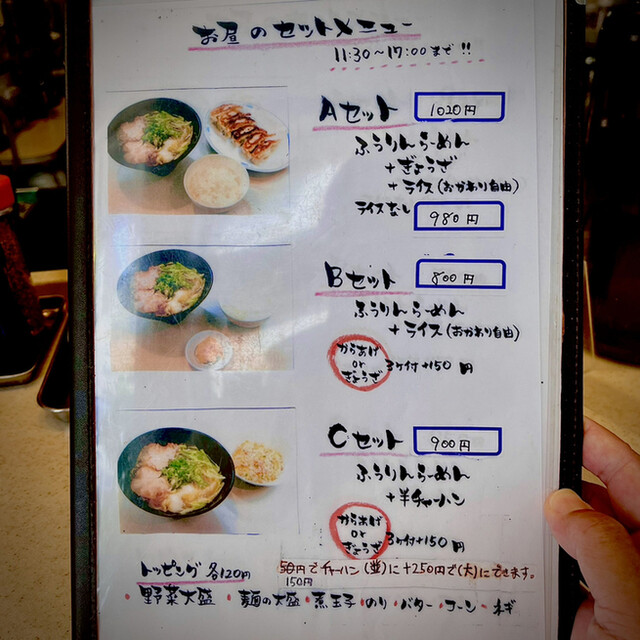 お昼のセットメニュー
11:30〜17:00まで!!
Aセット 1020円
ふうりんらーめん
+ぎょうざ
+ライス(おかわり自由)
ライスなし 980円
Bセット 800円
ふうりんらーめん
+ライス(おかわり自由)
からあげ
or
ぎょうざ
3ヶ付+150円
Cセット 900円
ふうりんらーめん
+半チャーハン
からあげ
or
ぎょうざ
3ヶ付+150円
トッピング 各120円
50円でチャーハン(並)に+250円で(大)にできます。
150円
・野菜大盛・麺の大盛・煮玉子・のり・バター・コーン・ネギ